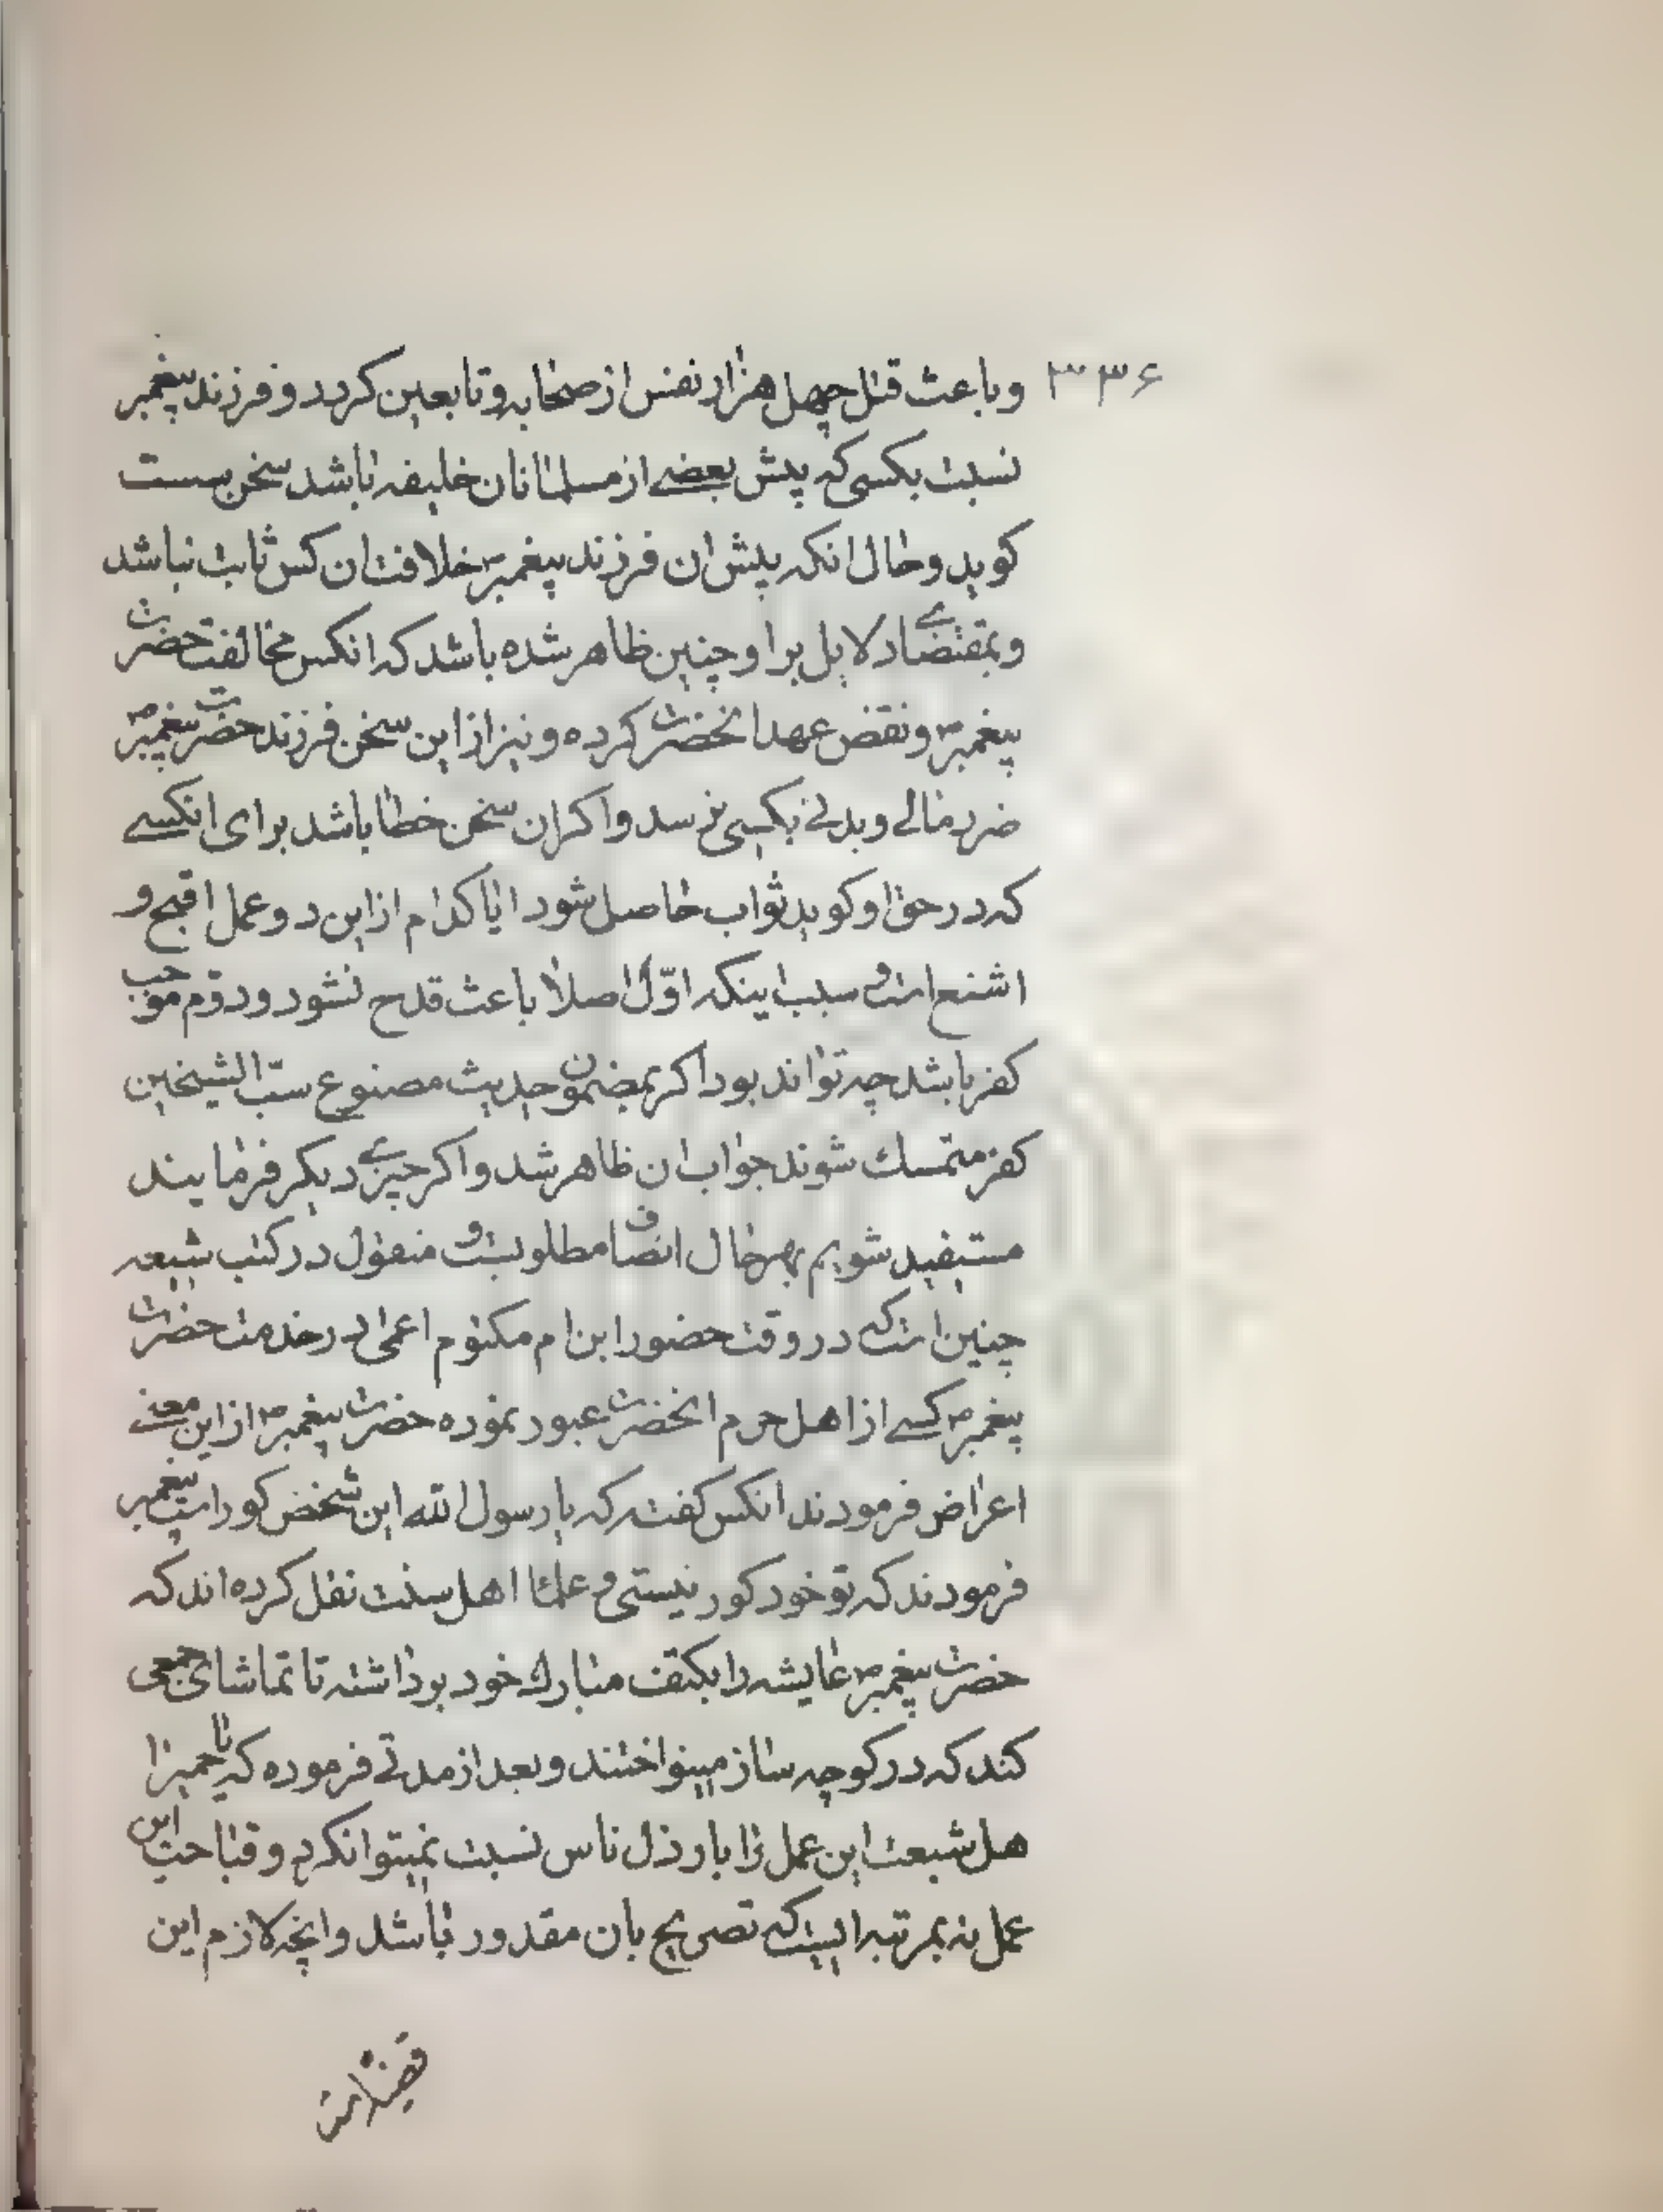 ۳۳۶
وباعث قتل چهل هزار نفس از صحابه وتابعین کردد و فرزند پیغمبر
نسبت بکسی که پیش بعضے از مسلمانان خلیفه باشد سخن سست
کوید و حال انکه پیش ان فرزند پیغمبر خلافت ان کس ثابت نباشد
و بمقتضاے دلایل بر او چنین ظاهر شده باشد که انکس مخالفت حضرت
پیغمبر ص و نقض عهد انحضرت کرده و نیز از این سخن فرزند حضرت پیغمبر ص
ضرر مالے و بدنے بکسی نرسد و اکر ان سخن خطا باشد برای انکسے
که در حق او کوید ثواب حاصل شود ایا کدام از این دو عمل اقبح و
اشنع است و سبب اینکه اوّل اصلا باعث قدح نشود و دوّم موجب
کفر باشد چه تواند بود اکر بمضمون حدیث مصنوع سبّ الشیخین
کفر متمسك شوند جواب ان ظاهر شد و اکر چیزے دیکر فرمایند
مستفید شویم بهر حال انصاف مطلوبست و منقول در کتب شیعه
چنین است که در وقت حضور ابن ام مکتوم اعمی در خدمت حضرت
پیغمبر ص کسے از اهل حرم انحضرت عبور نموده حضرت پیغمبر ص از این معنے
اعراض فرمودند انکس کفت که یا رسول الله این شخص کور است پیغمبر
فرمودند که تو خود کور نیستی و علمآ اهل سنت نقل کرده اند که
حضرت پیغمبر ص عایشه را بکتف مبارك خود برداشته تا تماشای جمعی
کند که در کوچه ساز مینواختند و بعد از مدتے فرموده که یا حمیرا
هل شبعت این عمل را بارذل ناس نسبت نمیتوانکرد و قباحت این
عمل نه بمرتبه ایست که تصریح بان مقدور باشد و انچه لازم این
قضیه است